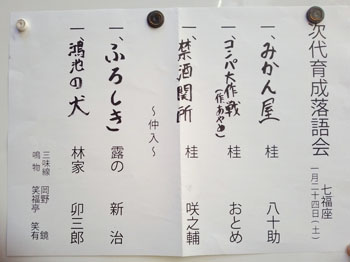 次代育成落語会
七福座
一月二十四日(土)
一、みかん屋 桂 八十助
一、ゴンパ大作戦 (作・あやめ) 桂 おとめ
一、禁酒関所 桂 咲之輔
〜仲入〜
一、ふろしき 露の 新治
一、鴻池の犬 林家 卯三郎
三味線 岡野 鏡
鳴物 笑福亭 笑有